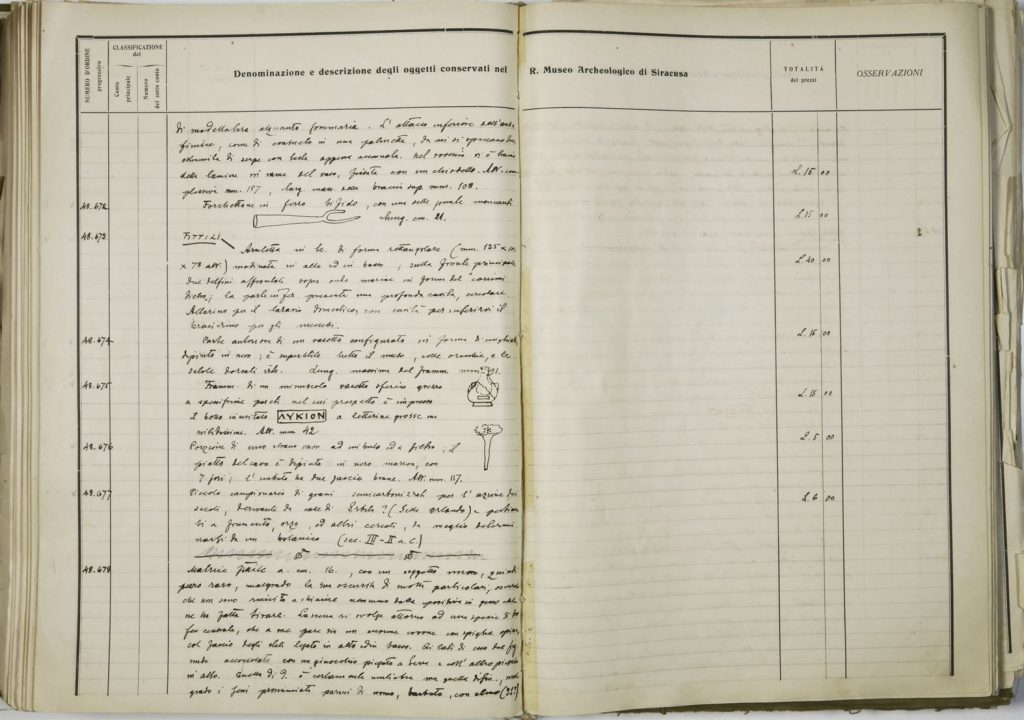 NUMERO D'ORDINE progressivo
CLASSIFICAZIONE del
Conto principale
Numero del sotto conto
Denominazione e descrizione degli oggetti conservati nel R. Museo Archeologico di Siracusa
TOTALITÀ dei prezzi
OSSERVAZIONI
di modellatura alquanto sommaria. L'attacco inferiore dell'ansa
finisce, come di consueto in una palmetta, da cui si
di serpe con teste appena accennate. Nel rovescio vi è
delle lamiere in rame del vaso, fissata con un chiodetto. Alt. com
plessiva mm. 157, larg. mass. delle braccia sup. mm. 108.
L. 15 00
48.672
Forchettone in ferro bifido, con una delle punte mancanti
lung. cm. 21.
L. 15 00
48.673
FITTILI
Aruletta in tc. di forma rettangolare (mm. 125 x
x 78 alt.) modinata in alto ed in basso; sulla fronte principale
due delfini affrontati sopra onde marine in forma del
; la parte inf. presenta una profonda cavità circolare
Altarino per il larario domestico, con cavità per inferirvi il
per gli incensi.
L. 40 00
48.674
Parte anteriore di un vasetto configurato in forma di cinghiale
dipinto in nero; è superstite tutto il muso, colle orecchie, e le
setole dorsali irte. Lung. massima del framm. mm. 91.
L. 15 00
48.675
Framm. di un minuscolo vasetto sferico grezzo
a nel cui prospetto è impresso
il bollo inusitato ΛΥΚΙΟΝ a letterine grosse ma
nitidissime. Alt. mm 42
L. 15 00
48.676
Porzione di vaso ad imbuto ed a filtro; il
piatto del è dipinto in nero, con
7 fori; l'imbuto ha due fascie brune. Alt. mm. 117.
L. 5 00
48.677
Piccolo campionario di grani semicarbonizzati per l'azione dei
secoli, derivanti da
a frumento, orzo, ed altri cereali, da meglio determi
narsi da un botanico (sec. III-II a.C.)
L. 6 00
48.678
Matrice fittile a. cm. 16., con un soggetto nuovo, quindi
raro, malgrado la sua oscurità di molti particolari,
che non sono riuscito a chiarire nemmeno dalla positiva in gesso che
ne ho fatta tirare. La scena si svolge attorno ad una specie di
centrale, che a me pare sia un enorme covone con spighe
col fascio degli steli legato in alto ed in basso. Ai lati di esso due
nude accosciate con un ginocchio piegato a terra e coll'altro piegato
in alto. Quella di d. è certamente muliebre ma quella di sin.,
grado i seni pronunciati parmi di uomo, barbuto, con elmo